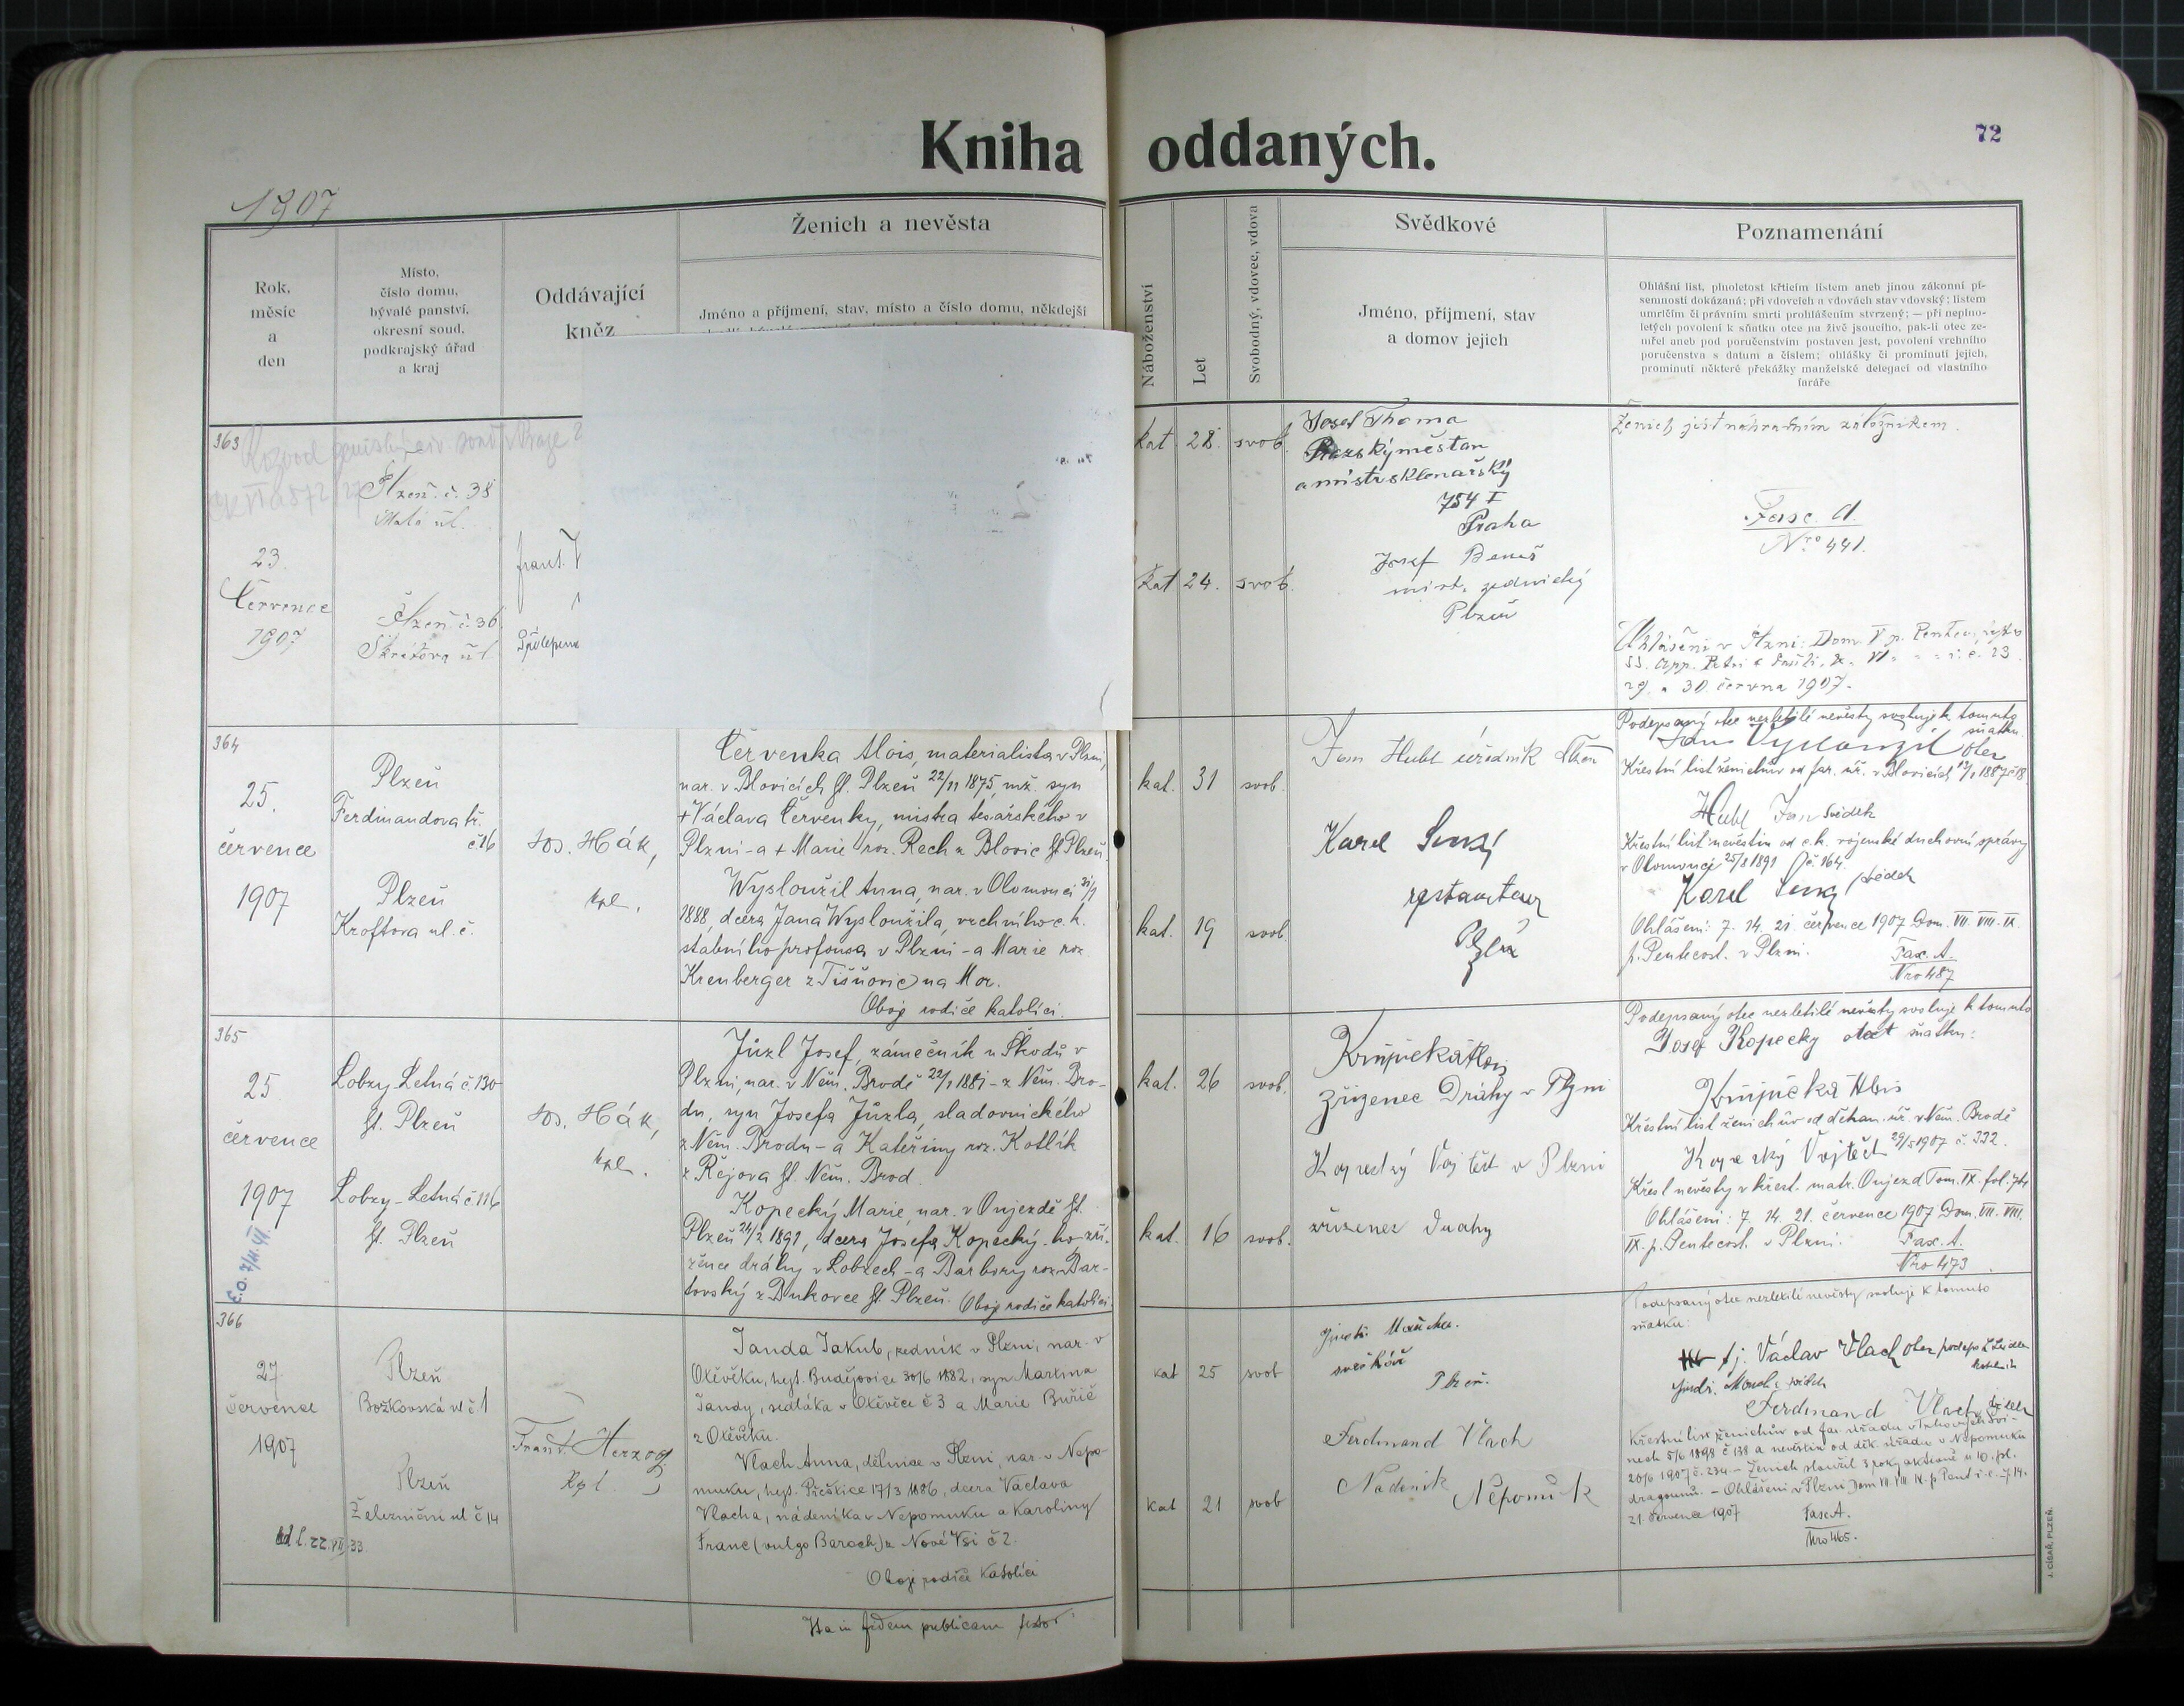 Kniha oddaných.
72
1907
Rok,
měsíc
a
den
Místo,
číslo domu,
bývalé panství,
okresní soud,
podkrajský úřad
a kraj
Oddávající
kněz
Ženich a nevěsta
Jméno a příjmení, stav, místo a číslo domu, někdejší
Náboženství
Let
Svobodný, vdovec, vdova
Svědkové
Jméno, příjmení, stav
a domov jejich
Poznamenání
Ohlášní list, plnoletost křticím listem aneb jinou zákonní pí-
semností dokázaná; při vdovcích a vdovách stav vdovský; listem
umrlčím či právním smrti prohlášením stvrzený; — při neplno-
letých povolení k sňatku otce na živě jsoucího, pak-li otec ze-
mřel aneb pod poručenstvím postaven jest, povolení vrchního
poručenstva s datum a číslem; ohlášky či prominutí jejich,
prominutí některé překážky manželské delegací od vlastního
faráře
363
Plzeň č. 38
Malá úl.
23.
Července
1907
Plzeň č. 36
Škrétova úl.
Frant.
kat 28. svob.
kat 24. svob.
Josef Thoma
Pražský měšťan
a mistr sklenářský
754 I
Praha
Josef Beneš
mist. zednický
Plzeň
Ženich jist náhradním záložníkem.
Fasc. A.
Nro 441.
Ohlášeni v Plzni: Dom. V p. Pentec.,
SS. App. Petri & Pauli, & VI " " i. e. 23.
29. a 30. června 1907.
364
25.
července
1907
Plzeň
Ferdinandova tř.
č 16
Plzeň
Kroftova ul. č.
Jos. Hák,
kpl.
Červenka Alois, materialista v Plzni,
nar. v Blovicích ht. Plzeň 22/11 1875, mž. syn
+ Václava Červenky, mistra tesařského v
Plzni - a + Marie roz. Rech z Blovic ht Plzeň.
Wysloužil Anna, nar. v Olomouci 31/1
1888, dcera Jana Wysloužila, vrchního c. k.
stabního profousa v Plzni - a Marie roz.
Krenberger z Tišňovic na Mor.
Oboji rodiče katolíci.
kat. 31 svob.
kat. 19 svob.
Jan Hubl úředník Plzeň
Karel
restaurateur
Plzeň
Podepsaný otec nezletilé nevěsty svoluje k tomuto
sňatku.
Jan Vysloužil otec
Křestní list ženichův od far. úř. v Blovicích
Hubl Jan svědek
Křestní list nevěstin od c. k. vojenské duchovní správy
v Olomouci 25/8 1891 č. 164.
Karel svědek
Ohlášeni: 7. 14. 21. července 1907 Dom. VII. VIII. IX.
p. Pentecost. v Plzni.
Fasc. A.
Nro 487
365
25
července
1907
Lobzy-Letná č. 130
ht. Plzeň
Lobzy-Letná č. 116
ht. Plzeň
Jos. Hák,
kpl.
Jůzl Josef, zámečník u Škodů v
Plzni, nar. v Něm. Brodě 22/1 1881 - z Něm. Bro-
du, syn Josefa Jůzla, sladovnického
z Něm. Brodu - a Kateřiny roz. Kotlík
z Řejova ht. Něm. Brod.
Kopecký Marie, nar. v Oujezdě ht.
Plzeň 24/2 1891, dcera Josefa Kopecký-ho zří-
zence dráhy v Lobzech - a Barbory roz. Bar-
tovský z Bukovce ht Plzeň. Oboji rodiče katolíci.
kat. 26 svob.
kat. 16 svob.
Krupička Alois
Zřizenec Dráhy v Plzni
Kopecký Vojtěch v Plzni
zřizenec Drahy
Podepsaný otec nezletilé nevěsty svoluje k tomuto
sňatku:
Josef Kopecky otec
Krupička Alois
Křestní list ženichův od děkan. úř. v Něm. Brodě
29/5 1907 č. 332.
Kopecký Vojtěch
Křest nevěsty v křest. matr. Oujezd Tom. IX. fol.
Ohlášeni: 7. 14. 21. července 1907 Dom. VII. VIII.
IX. p. Pentecost. v Plzni.
Fasc. A.
Nro 473
366
27.
července
1907
Plzeň
Božkovská ul č. 1
Plzeň
Železniční ul č 14
Frant. Herzog
Kpl.
Janda Jakub, zedník v Plzni, nar. v
Olěvíku, hejt. Budějovice 30/6 1882, syn Martina
Jandy, sedláka v Olěvíce č 3 a Marie Buřič
z Olěvíku.
Vlach Anna, dělnice v Plzni, nar. v Nepo-
muku, hejt. Přeštice 17/3 1886, dcera Václava
Vlacha, nádeníka v Nepomuku a Karoliny
Franc (vulgo Baroch) z Nové Vsi č 2.
Oboji rodiče katolíci
kat 25 svob
kat 21 svob
Jindř.
Plzeň.
Ferdinand Vlach
Nadeník Nepomuk
Podepsaný otec nezletilé nevěsty svoluje k tomuto
sňatku:
Václav Vlach otec
Jindř. svědek
Ferdinand Vlach svědek
Křestní list ženichův od far. úřadu v Svi-
nech 5/6 1898 č 138 a nevěstin od děk. úřadu v Nepomuku
20/6 1907 č. 234. - Ženich sloužil 3 roky aktivně u 10. pl.
dragounů. - Ohlášeni v Plzni Dom VII. VIII. IX. p. Pent i. e. 7. 14.
21. července 1907
Fasc A.
Nro 465.
Ita in fidem publicam testor
J. CÍSAŘ, PLZEŇ.